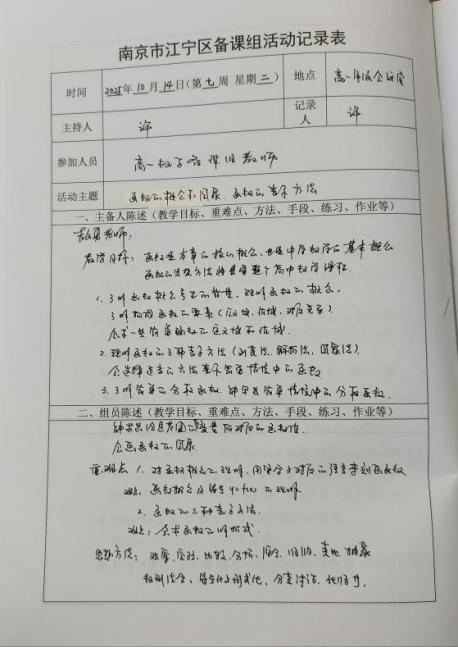 南京市江宁区备课组活动记录表
时间 2025年10月14日(第七周 星期二) 地点 高一年级会议室
主持人 许 记录人 许
参加人员 高一数学备课组教师
活动主题 函数的概念和图象、函数的表示方法
一、主备人陈述(教学目标、重难点、方法、手段、练习、作业等)
教师:
教学目标: 函数是本章的核心概念,也是中学数学的基本概念
函数的思想方法将贯穿整个高中数学课程.
1. 了解函数概念产生的背景,理解函数的概念.
了解构成函数的要素(定义域、值域、对应关系)
会求一些简单函数的定义域和值域.
2. 理解函数的3种表示方法(列表法、解析法、图象法)
会选择适当的方法表示实际情境中的函数
3. 了解简单的分段函数,能写出简单情境中的分段函数,
二、组员陈述(教学目标、重难点、方法、手段、练习、作业等)
能求出给定范围变量所对应的函数值.
会画函数的图象.
重难点 1. 对函数概念的理解,用集合与对应的语言来刻画函数
难点:函数概念及符号y=f(x)的理解
2. 函数的三种表示方法.
难点:会求函数的解析式.
思想方法: 观察、实验、比较、分析、综合、归纳、类比、抽象
数形结合、分类讨论、